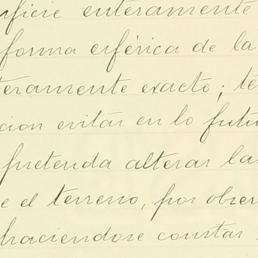 ficie enteramente
forma esférica de la
teramente exacto; te
cion evitar en lo futu
pretenda alterar la
e el terreno, por obser
haciendose constar